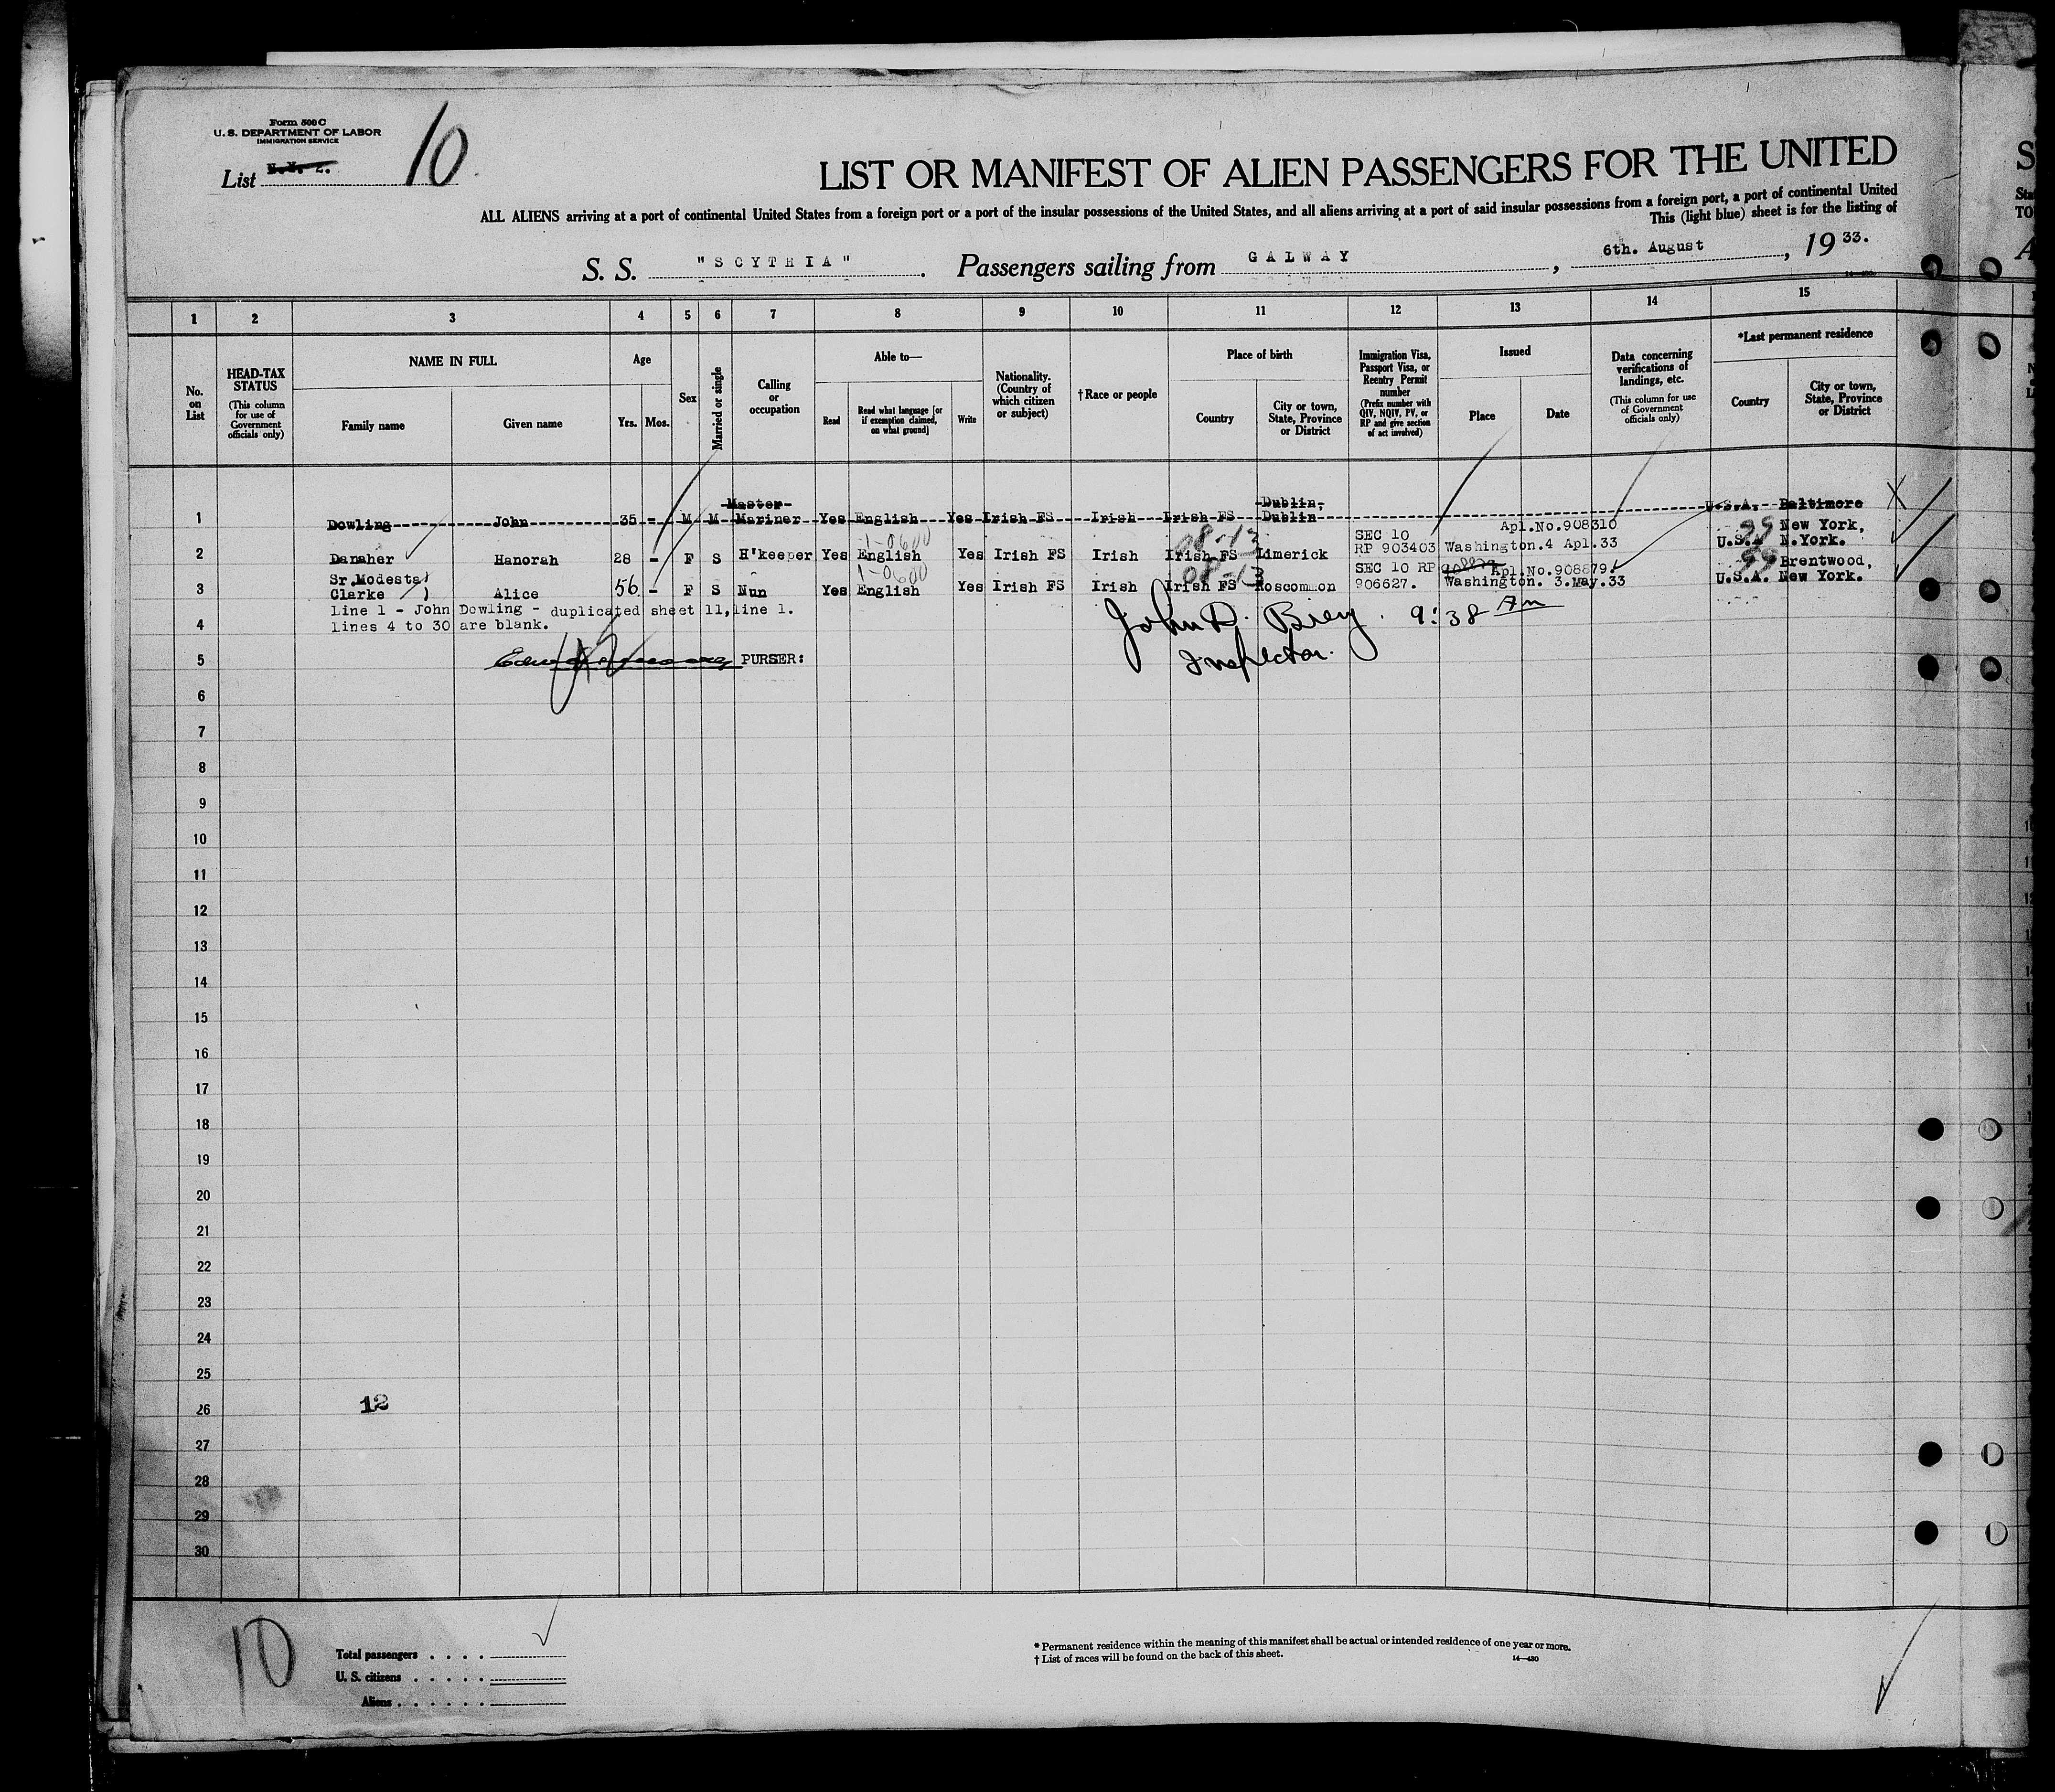 Form 500 C
U. S. DEPARTMENT OF LABOR
IMMIGRATION SERVICE
List
10
LIST OR MANIFEST OF ALIEN PASSENGERS FOR THE UNITED
ALL ALIENS arriving at a port of continental United States from a foreign port or a port of the insular possessions of the United States, and all aliens arriving at a port of said insular possessions from a foreign port, a port of continental United
This (light blue) sheet is for the listing of
S. S. "SCYTHIA". Passengers sailing from GALWAY, 6th. August, 1933.
1 2 3 4 5 6 7 8 9 10 11 12 13 14 15
No. on List
HEAD-TAX STATUS
(This column for use of Government officials only)
NAME IN FULL
Family name
Given name
Age
Yrs. Mos.
Sex
Married or single
Calling or occupation
Able to—
Read
Read what language [or if exemption claimed, on what ground]
Write
Nationality. (Country of which citizen or subject)
†Race or people
Place of birth
Country
City or town, State, Province or District
Immigration Visa, Passport Visa, or Reentry Permit number
(Prefix number with QIV, NQIV, PV, or RP and give section of act involved)
Issued
Place
Date
Data concerning verifications of landings, etc.
(This column for use of Government officials only)
*Last permanent residence
Country
City or town, State, Province or District
1 Dowling John 35 - M M Master Mariner Yes English Yes Irish FS Irish Irish FS Dublin, Dublin U.S.A. Baltimore
1-0600 08-13 SEC 10 Apl.No.908310 99 New York,
2 Danaher Hanorah 28 - F S H'keeper Yes English Yes Irish FS Irish Irish FS Limerick RP 903403 Washington.4 Apl.33 U.S.A N.York.
Sr.Modesta) 1-0600 08-13 SEC 10 RP Apl.No.908879. 99 Brentwood,
3 Clarke ) Alice 56 - F S Nun Yes English Yes Irish FS Irish Irish FS Roscommon 906627. Washington. 3.May.33 U.S.A. New York.
Line 1 - John Dowling - duplicated sheet 11,line 1.
4 Lines 4 to 30 are blank.
John D. Brey. 9:38 Am
5 PURSER:
Inspector.
6
7
8
9
10
11
12
13
14
15
16
17
18
19
20
21
22
23
24
25
12
26
27
28
29
30
10
Total passengers . . . .
U. S. citizens . . . . .
Aliens . . . . . .
* Permanent residence within the meaning of this manifest shall be actual or intended residence of one year or more.
† List of races will be found on the back of this sheet.
14—430